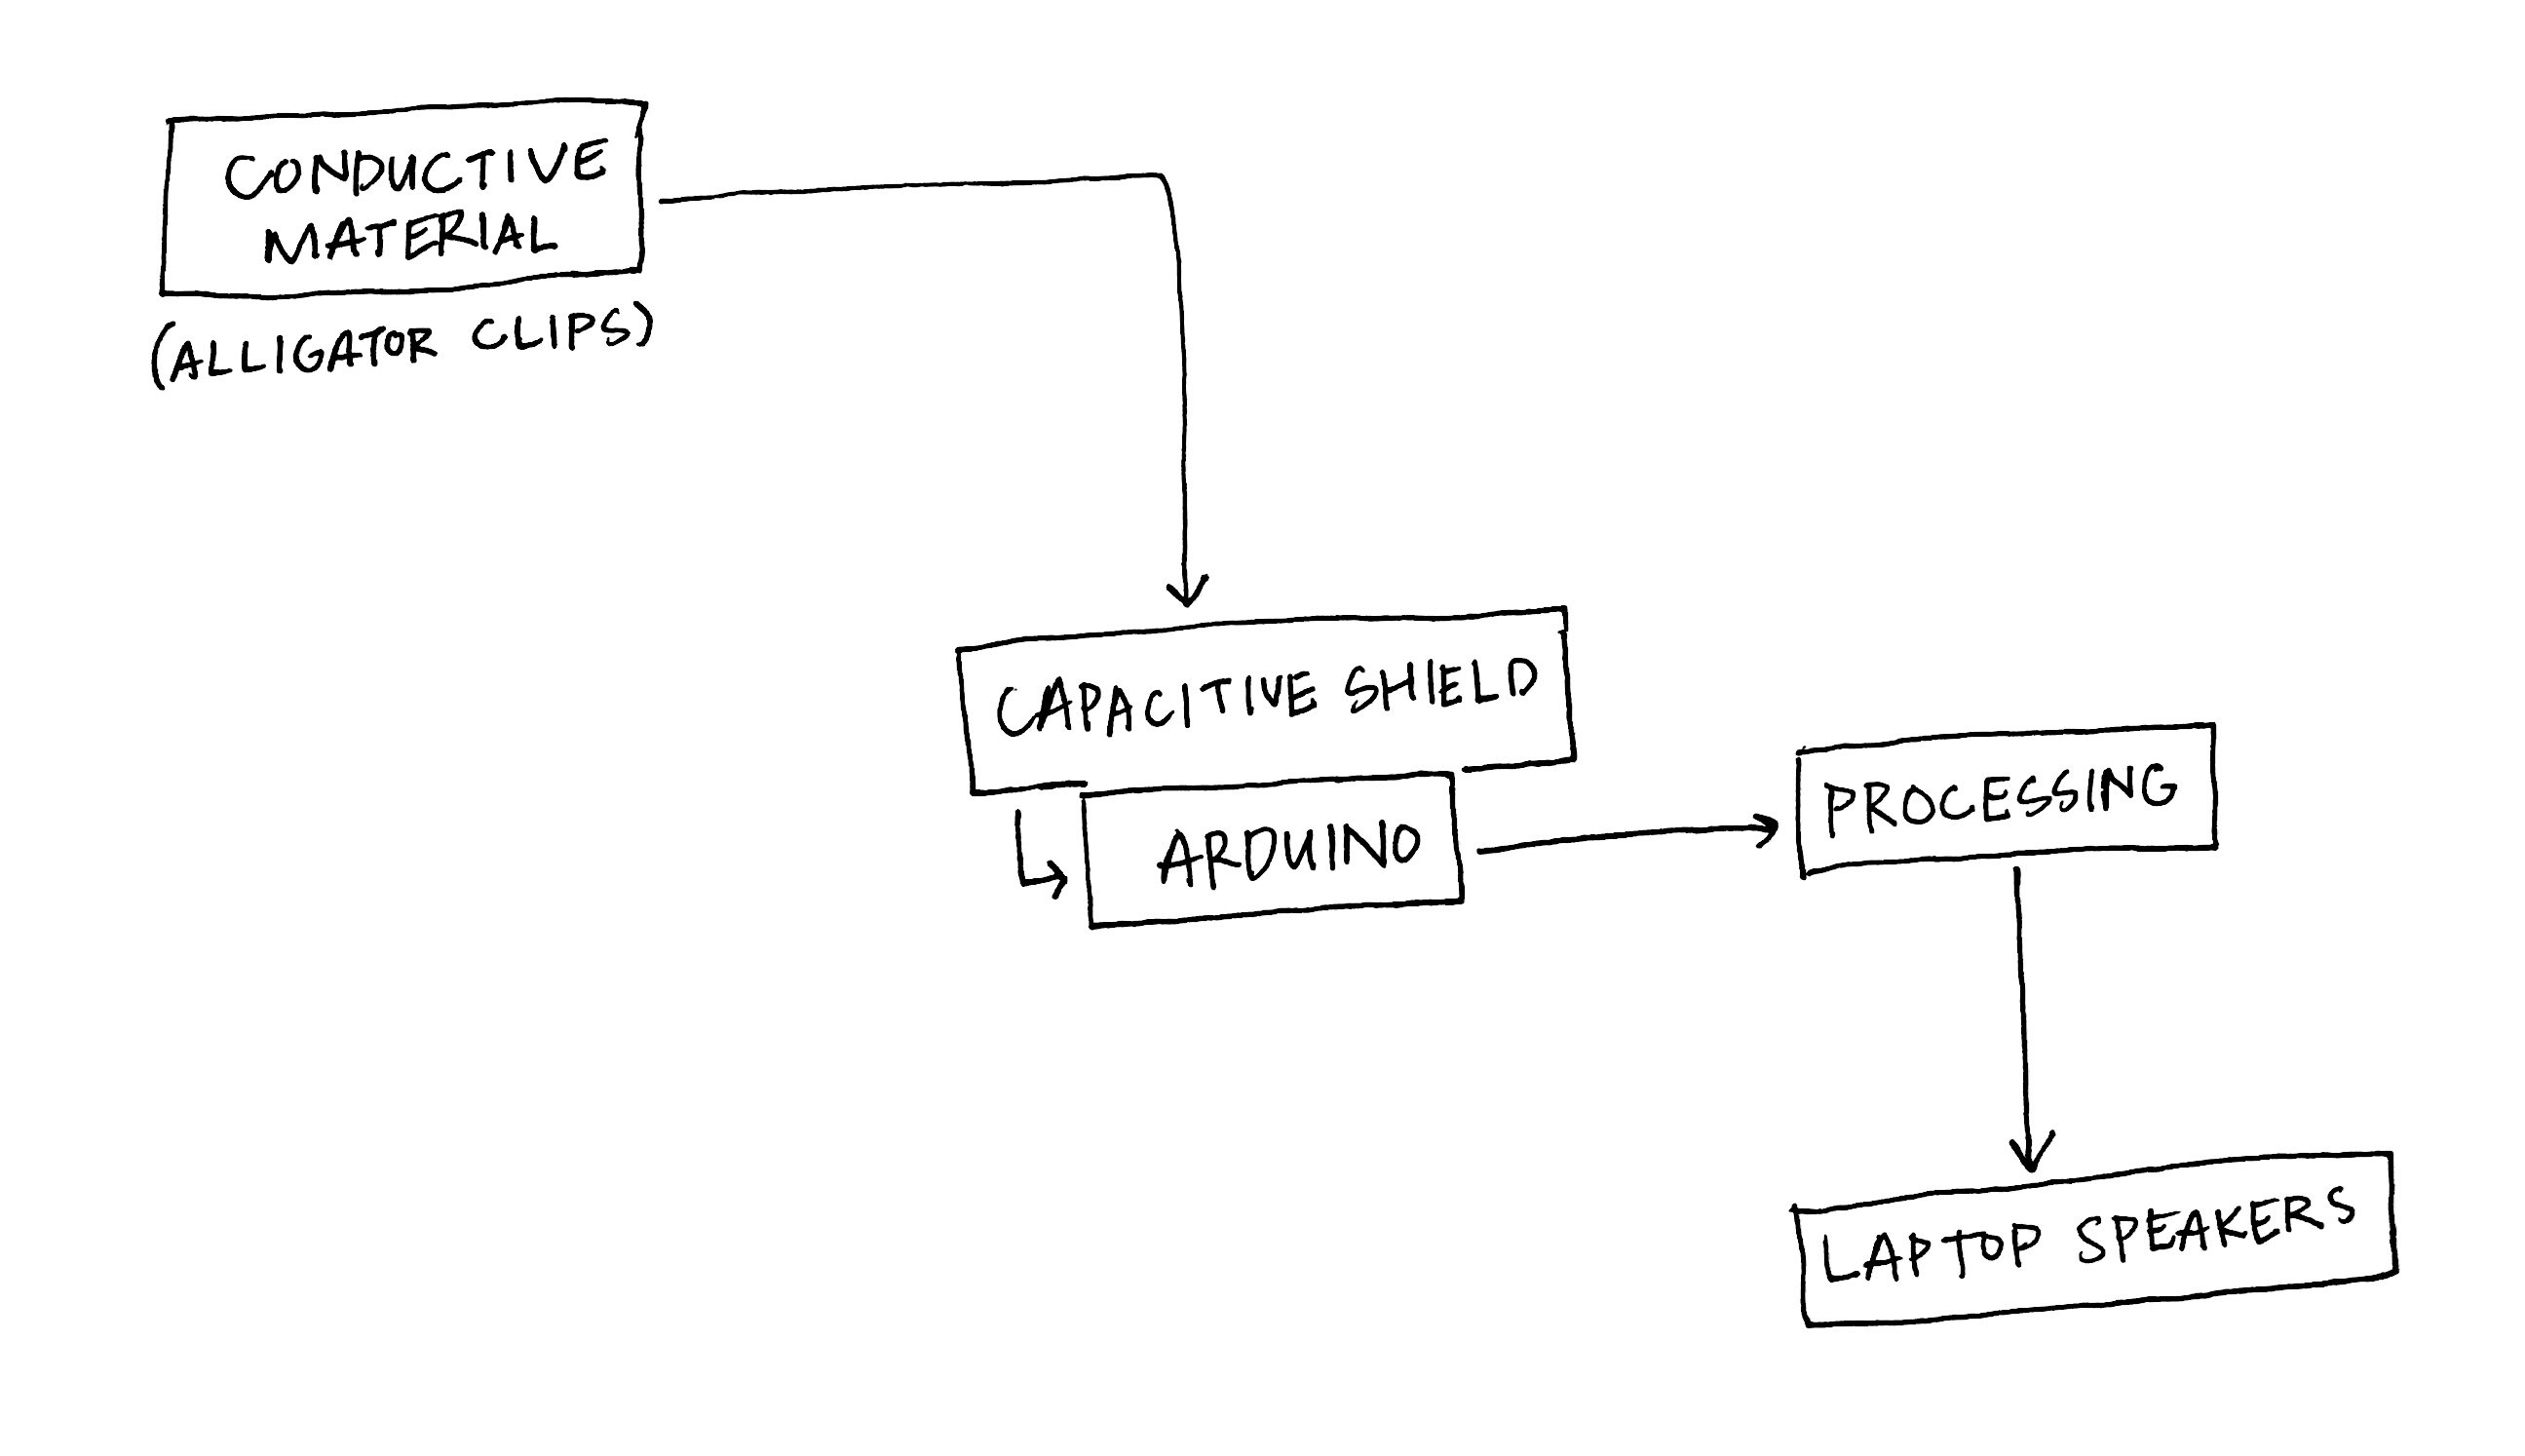 CONDUCTIVE
MATERIAL
(ALLIGATOR CLIPS)
CAPACITIVE SHIELD
ARDUINO
PROCESSING
LAPTOP SPEAKERS